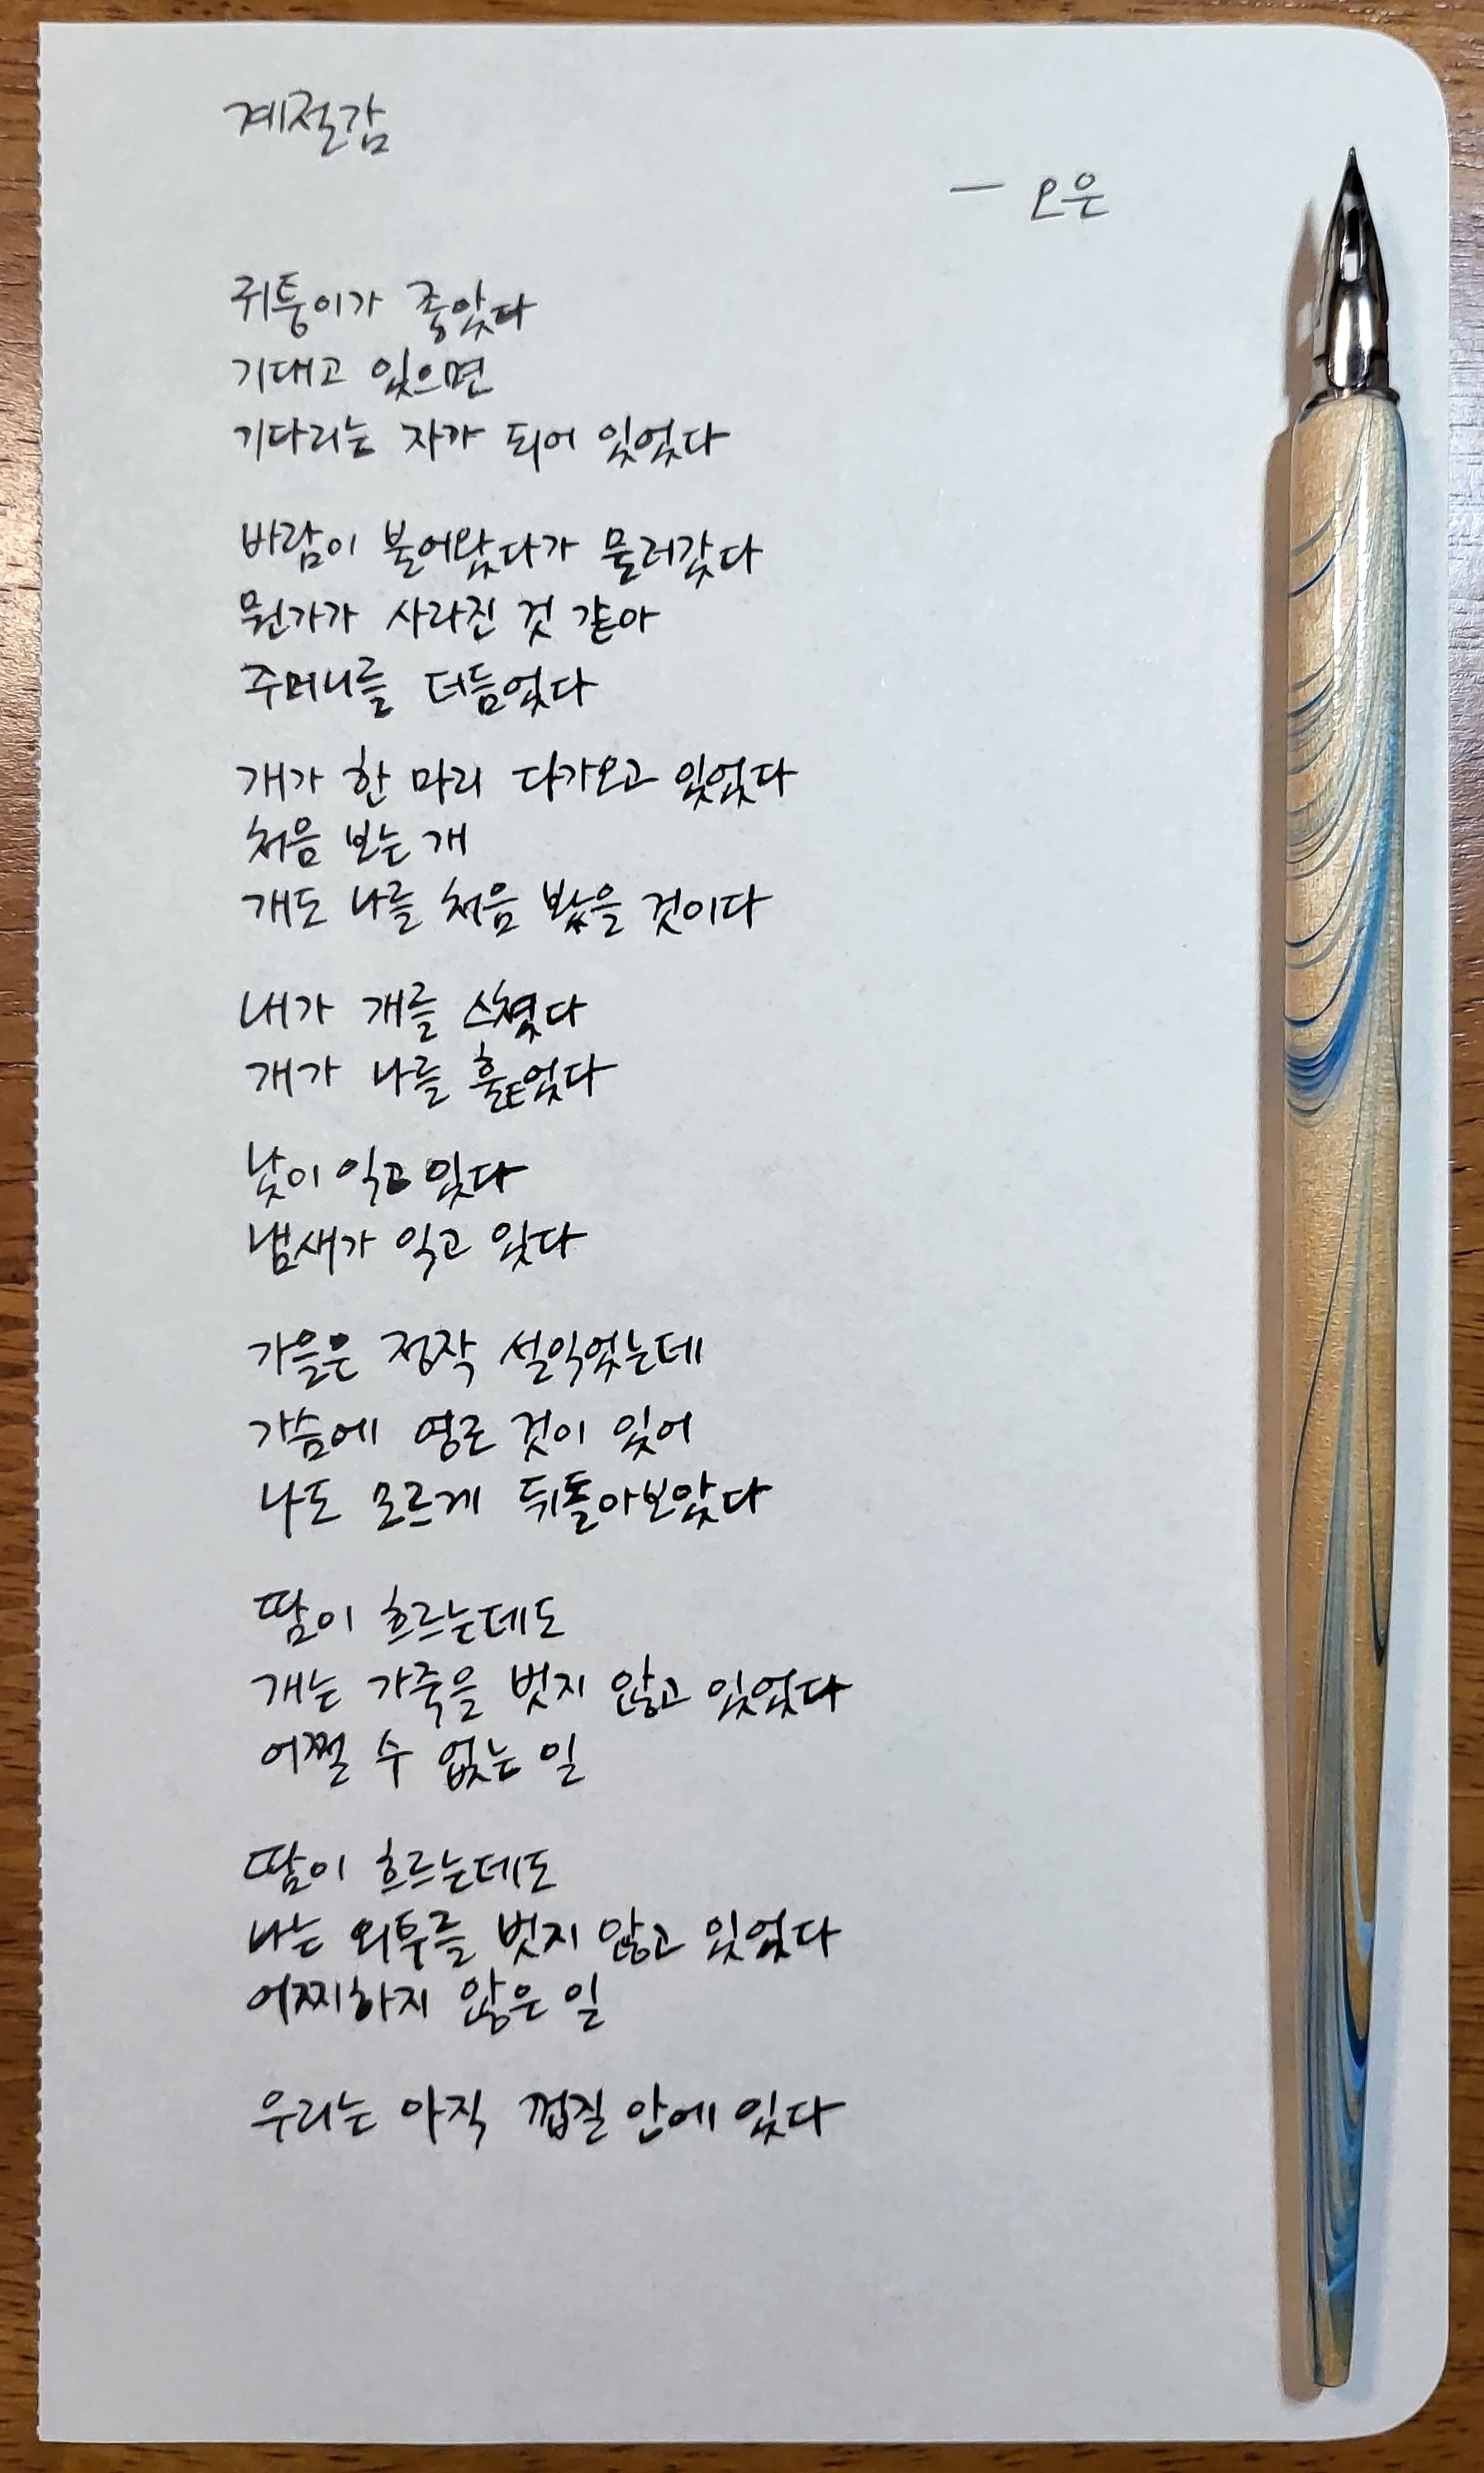 계절감
— 오은
귀퉁이가 좋았다
기대고 있으면
기다리는 자가 되어 있었다
바람이 불어왔다가 물러갔다
뭔가가 사라진 것 같아
주머니를 더듬었다
개가 한 마리 다가오고 있었다
처음 보는 개
개도 나를 처음 봤을 것이다
내가 개를 스쳤다
개가 나를 훑었다
낮이 익고 있다
냄새가 익고 있다
가을은 정작 설익었는데
가슴에 영근 것이 있어
나도 모르게 뒤돌아보았다
땀이 흐르는데도
개는 가죽을 벗지 않고 있었다
어쩔 수 없는 일
땀이 흐르는데도
나는 외투를 벗지 않고 있었다
어찌하지 않은 일
우리는 아직 껍질 안에 있다